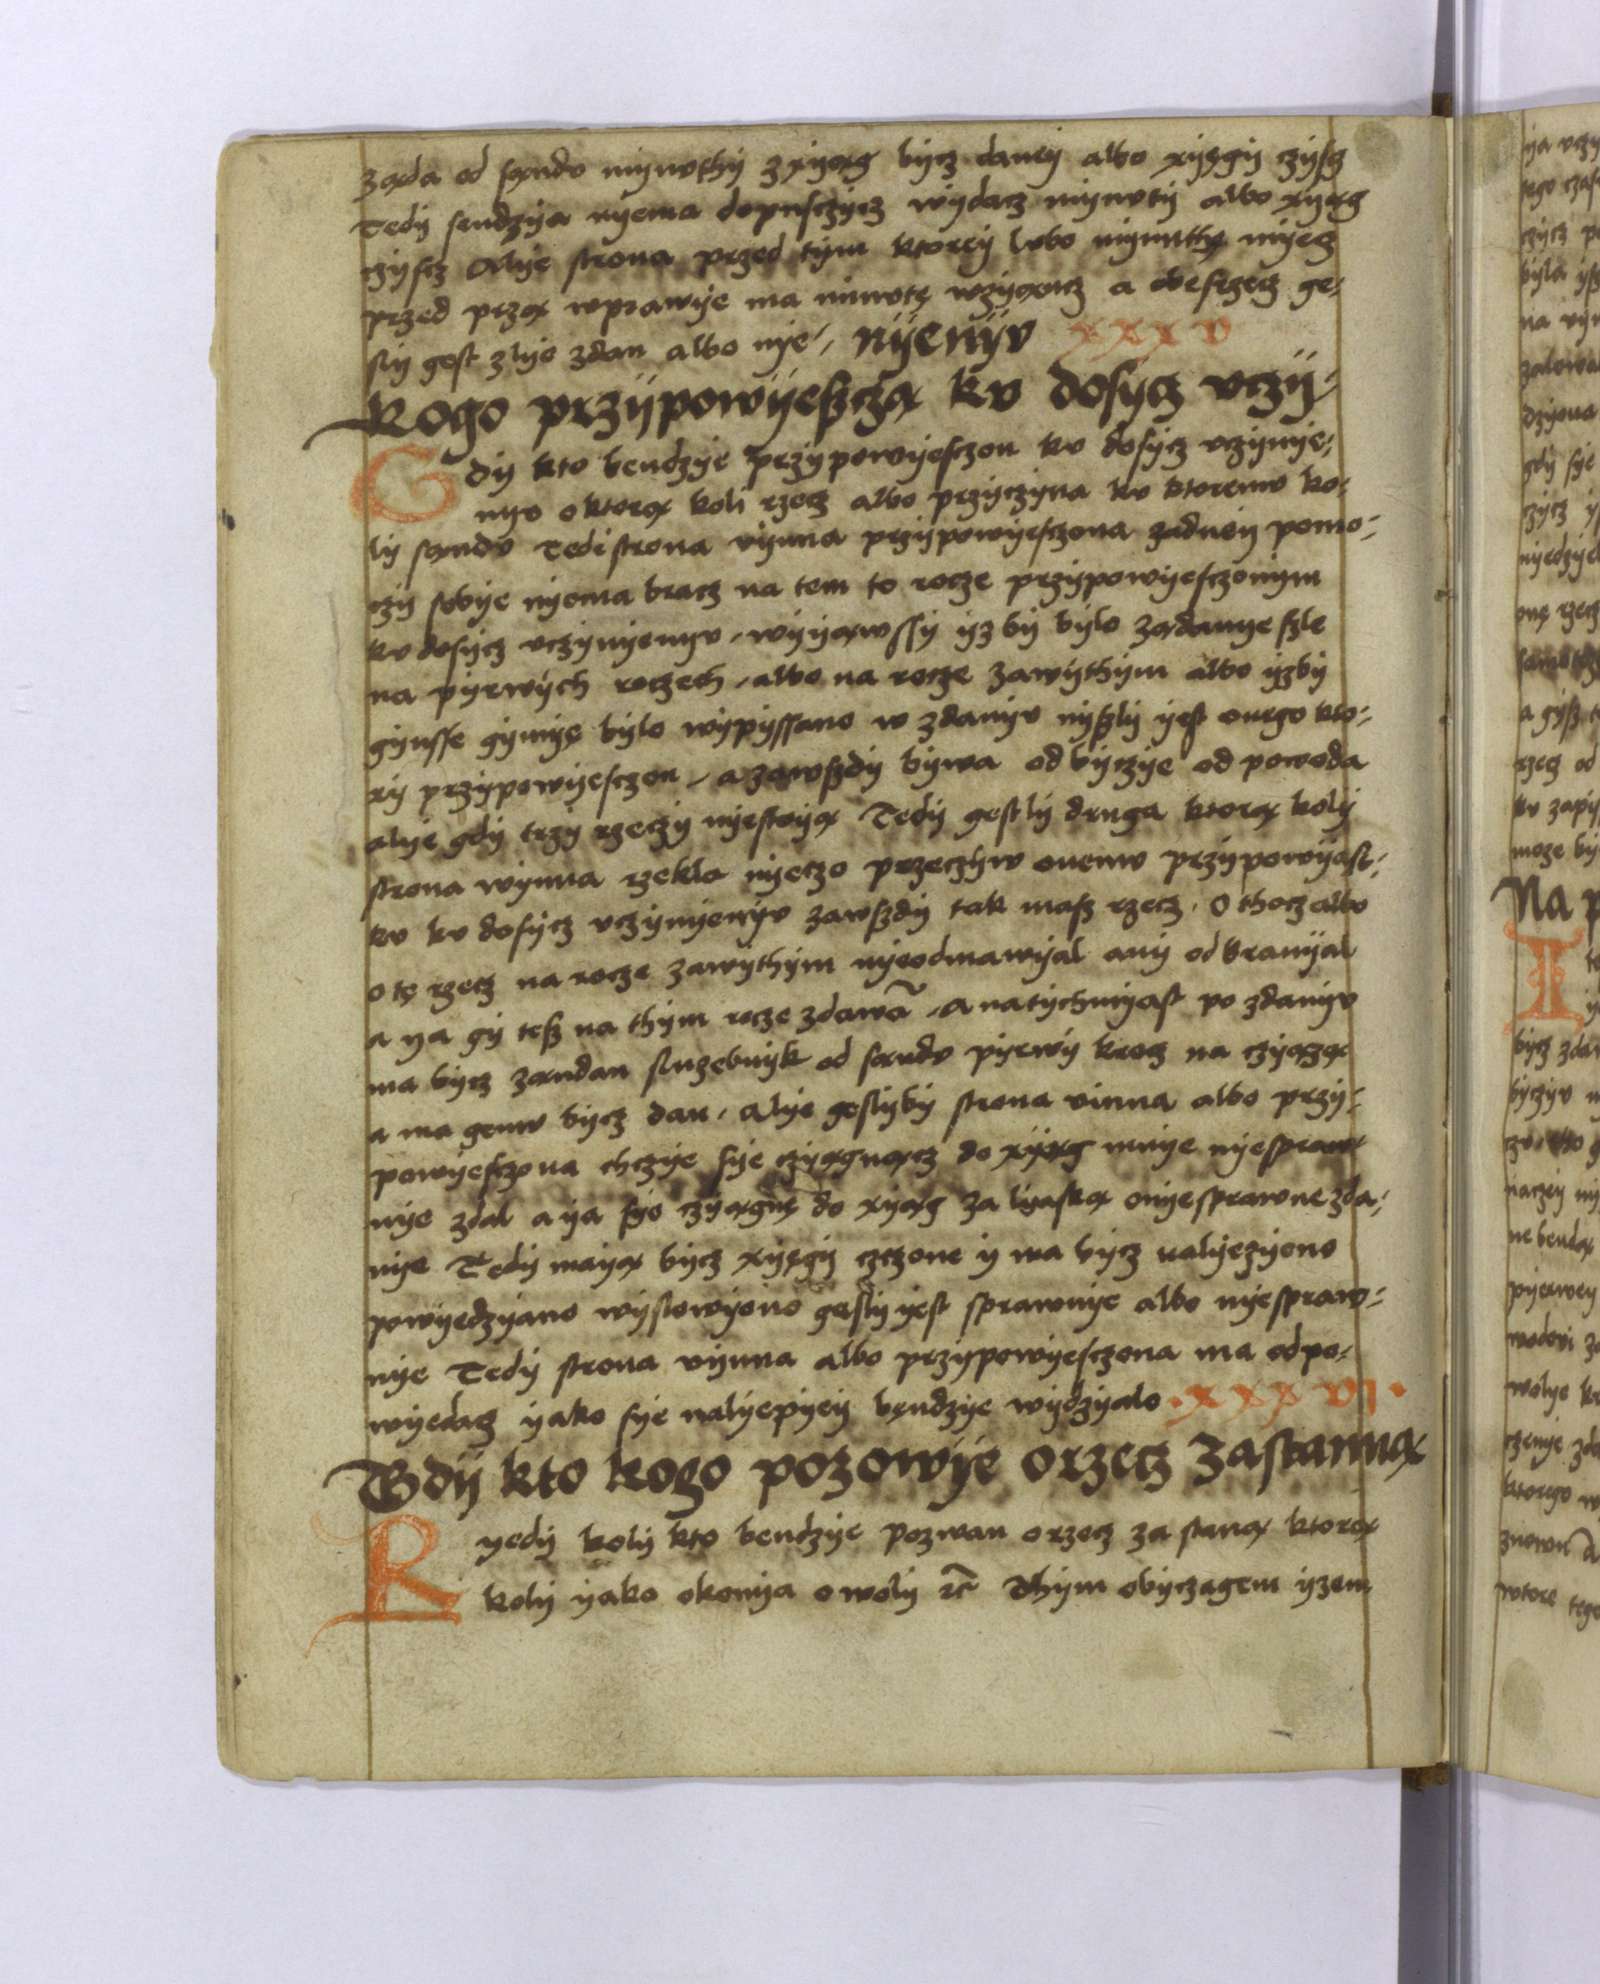 ząda od sąndu mynuthy z xyąg bycz daney albo xyęgy czyscz
Tedy sendzya nyema dopusczycz wydacz mynuty albo xyąg
czyscz Alye strona przed tym ktorey lubo mynuthę myecz
przed przą wprawye ma minutę wzyąncz a obesrzecz ge⸗
sly gest zlye zdan albo nye⸗ nyenyu xxxv
Kogo przypowyeszczą ku dosycz uczy⸗
Gdy kto bendzye przypowyesczon ku dosycz uczynye⸗
nyu o ktorą koli rzecz albo przyczyna ku ktoremu ko⸗
ly sąndu Tedi strona vynna przypowyesczona zadney pomo⸗
czy sobye nyema bracz na tem to rocze przypowyesczonym
ku dosycz uczynyenyu, wyyąwssy yz by bylo ządanye szle
na pyrwych roczech, albo na rocze zawythym albo yzby
gynsse gymyę bylo wypyssano w zdanyu nyszly yest onego kto⸗
ry przypowyesczon, a zawszdy bywa odbyczye od powoda
alye gdy trzy rzeczy nyestoyą Tedy gestly druga ktorą koly
strona wynna rzekla nyeczo przeczyw onemu przypowyast⸗
ku ku dosycz uczynyenyu zawszdy tak masz rzecz. O thocz albo
o tę rzecz na rocze zawythym nyeodmawyal any odbranyal
a ya gy tesz na thym rocze zdawā, A natychmyast po zdanyu
ma bycz ządan sluzebnyk od sąndu pyrwy krocz na czyążą
a ma gemu bycz dan, Alye geslyby strona vinna albo przy⸗
powyesczona chczye sye czyągnącz do xyąg mnye nyespraw
nye zdal a ya sye czyągnę do xyąg za lyaską onyesprawne zda⸗
nye Tedy mayą bycz xyęgy czczone y ma bycz nalyezyono
powyedzyano wyslowyono gesly yest sprawnye albo nyespraw⸗
nye Tedy strona vynna albo przypowyesczona ma odpo⸗
wyedacz yako sye nalyepyey bendzye wydzyalo .xxxvi.
Gdy kto kogo pozowye o rzecz zastawną
Kyedy koly kto bendzye pozwan o rzecz za stawą ktorą
koly yako okonya o woly etc Thym obyczagem yzem